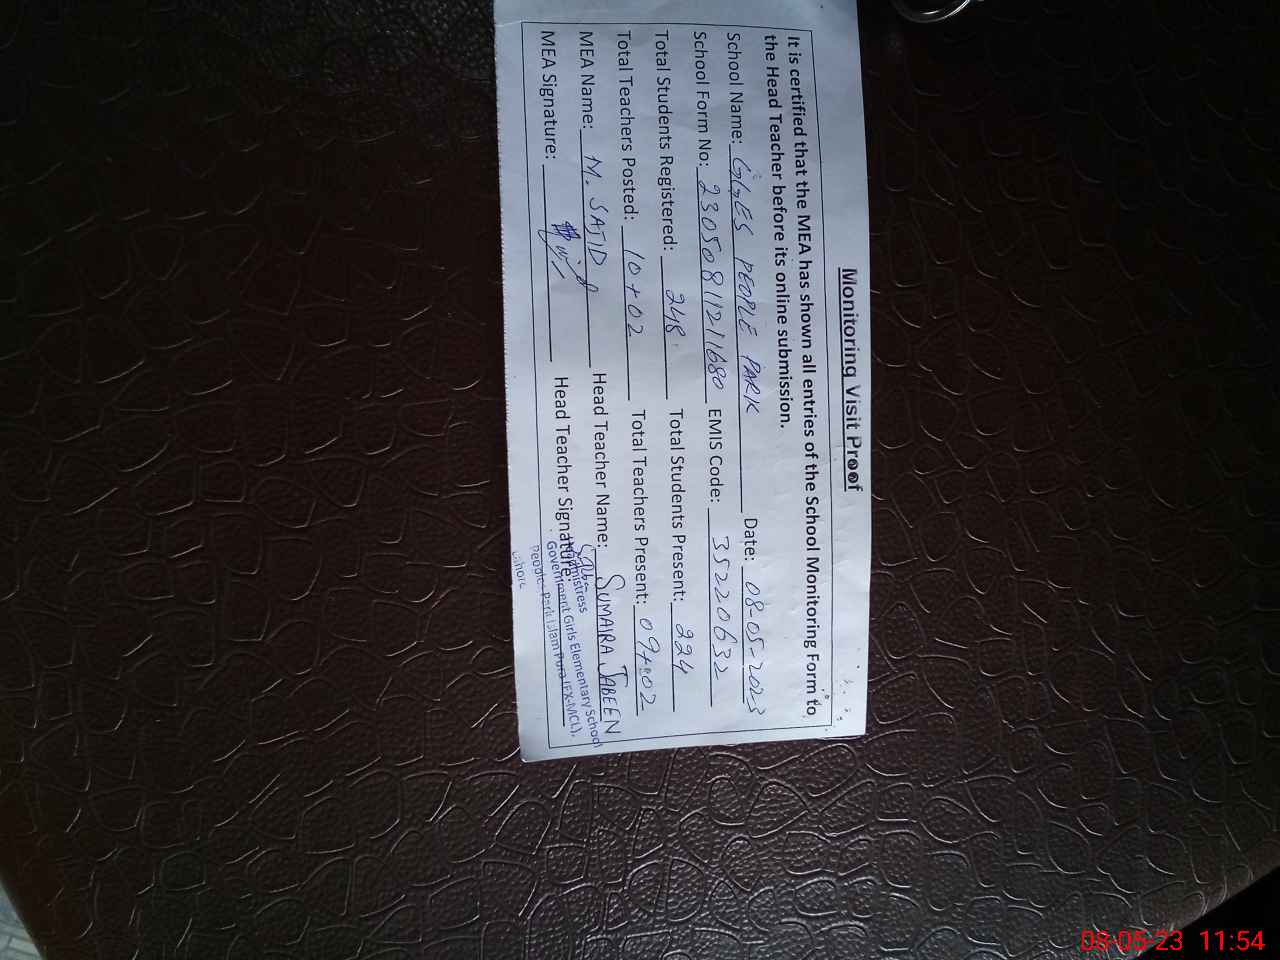 Monitoring Visit Proof
It is certified that the MEA has shown all entries of the School Monitoring Form to
the Head Teacher before its online submission.
School Name: GGES PEOPLE PARK Date: 08-05-2023
School Form No: 23050811211680 EMIS Code: 35220632
Total Students Registered: 248 Total Students Present: 224
Total Teachers Posted: 10+02 Total Teachers Present: 09+02
MEA Name: M. SAJID Head Teacher Name: SUMAIRA JABEEN
MEA Signature: Head Teacher Signature:
Headmistress
Government Girls Elementary School
Peoples Park Islam Pura (EX-MCL).
Lahore
08-05-23 11:54